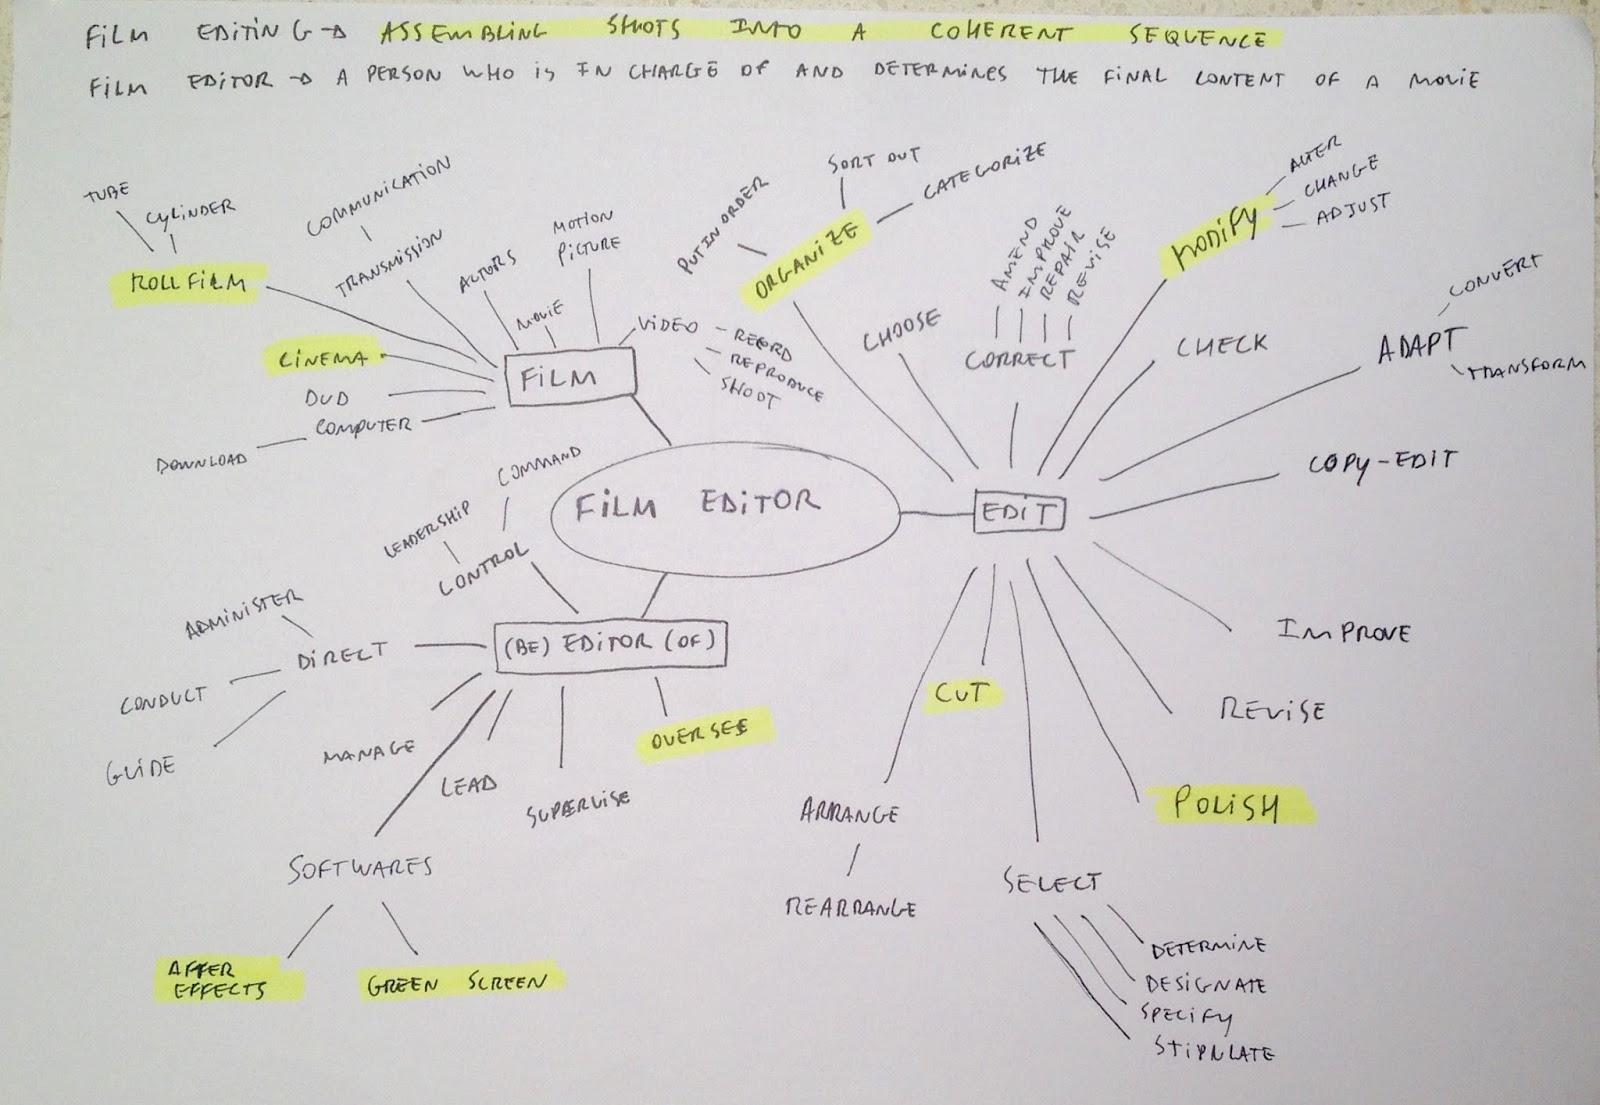 FILM EDITING → ASSEMBLING SHOTS INTO A COHERENT SEQUENCE
FILM EDITOR → A PERSON WHO IS IN CHARGE OF AND DETERMINES THE FINAL CONTENT OF A MOVIE
TUBE
CYLINDER
ROLL FILM
COMMUNICATION
TRANSMISSION
ACTORS
MOVIE
MOTION
PICTURE
VIDEO
RECORD
REPRODUCE
SHOOT
CINEMA
DVD
COMPUTER
DOWNLOAD
FILM
PUT IN ORDER
SORT OUT
CATEGORIZE
ORGANIZE
CHOOSE
AMEND
IMPROVE
REPAIR
REVISE
CORRECT
MODIFY
ALTER
CHANGE
ADJUST
CHECK
CONVERT
ADAPT
TRANSFORM
COPY-EDIT
FILM EDITOR
EDIT
COMMAND
LEADERSHIP
CONTROL
ADMINISTER
DIRECT
CONDUCT
GUIDE
(BE) EDITOR (OF)
MANAGE
LEAD
SUPERVISE
OVERSEE
SOFTWARES
AFTER
EFFECTS
GREEN SCREEN
IMPROVE
REVISE
POLISH
CUT
ARRANGE
REARRANGE
SELECT
DETERMINE
DESIGNATE
SPECIFY
STIPULATE